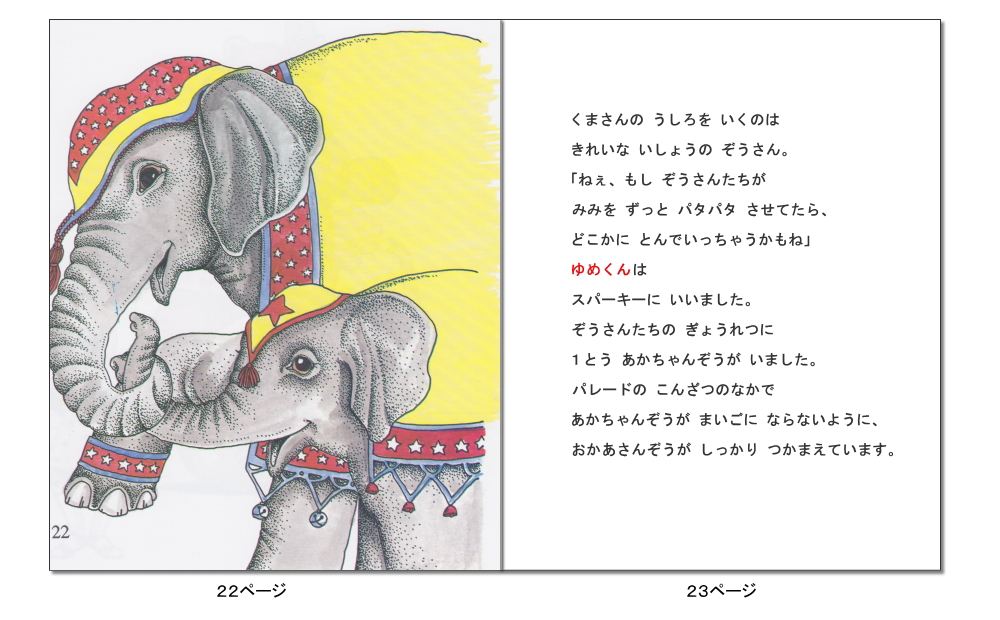 くまさんの うしろを いくのは
きれいな いしょうの ぞうさん。
「ねぇ、もし ぞうさんたちが
みみを ずっと パタパタ させてたら、
どこかに とんでいっちゃうかもね」
ゆめくんは
スパーキーに いいました。
ぞうさんたちの ぎょうれつに
1とう あかちゃんぞうが いました。
パレードの こんざつのなかで
あかちゃんぞうが まいごに ならないように、
おかあさんぞうが しっかり つかまえています。
22
22ページ
23ページ